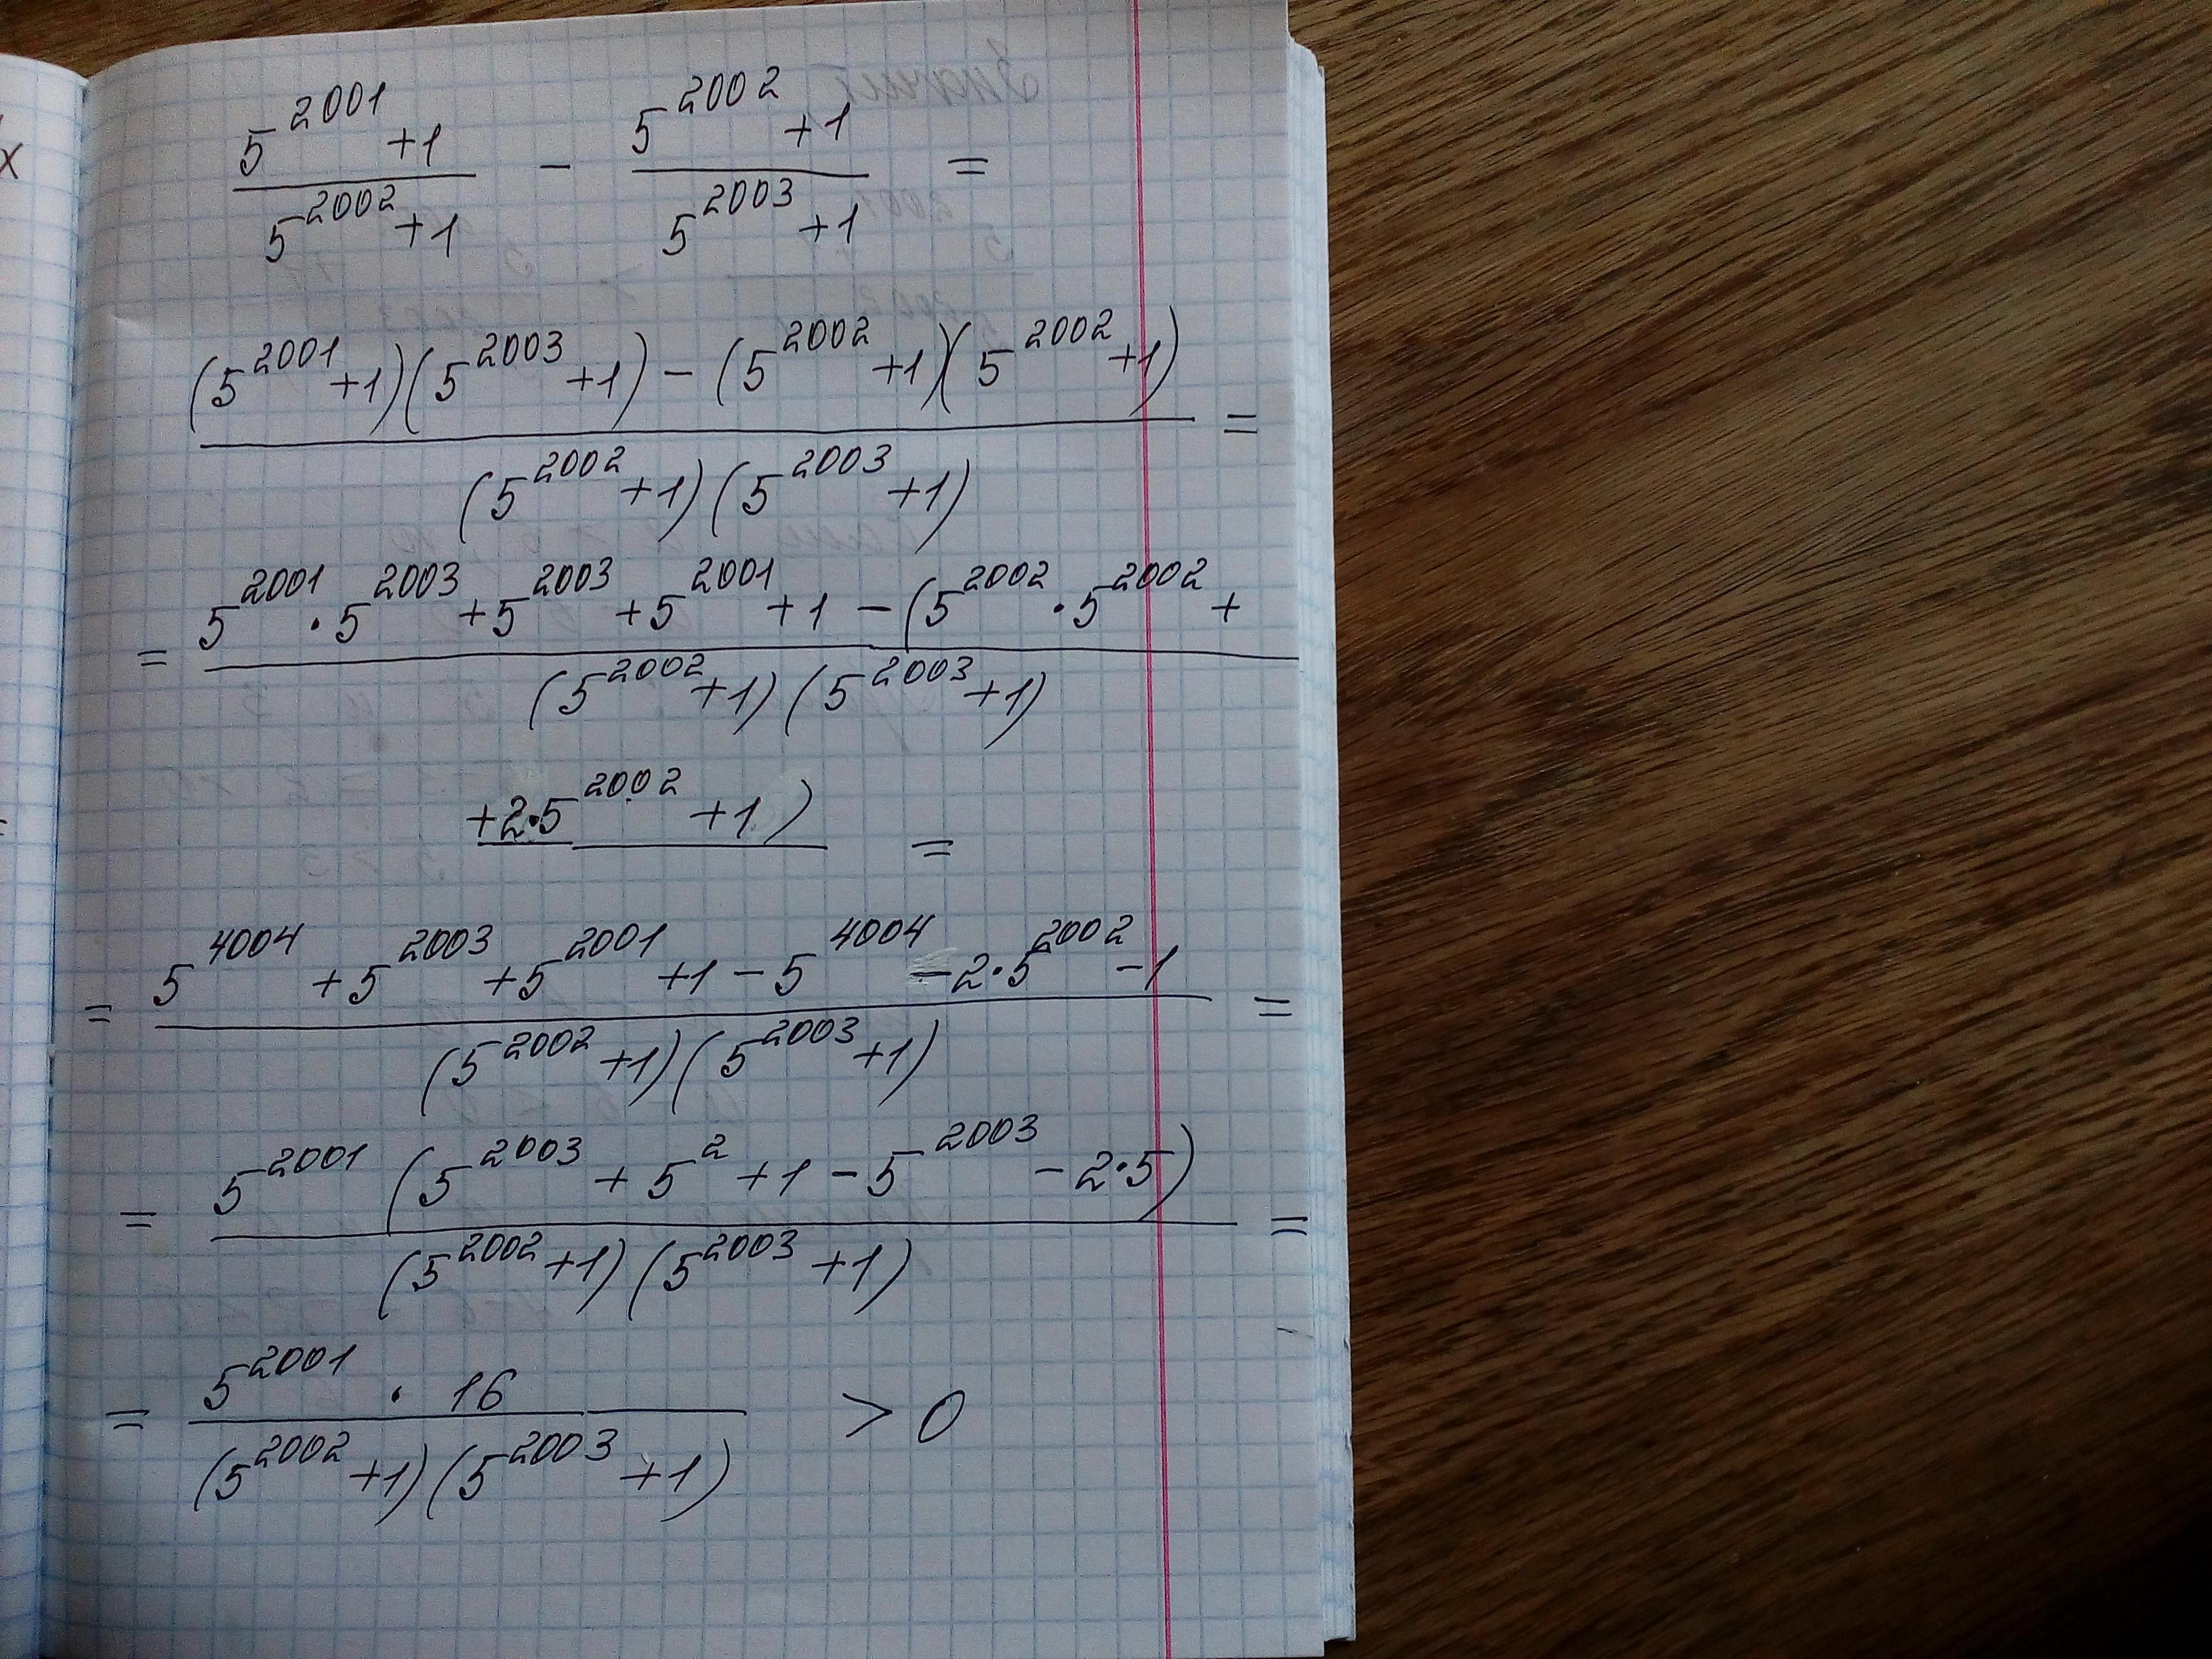 \frac{5^{2001}+1}{5^{2002}+1} - \frac{5^{2002}+1}{5^{2003}+1} =
\frac{(5^{2001}+1)(5^{2003}+1)-(5^{2002}+1)(5^{2002}+1)}{(5^{2002}+1)(5^{2003}+1)} =
= \frac{5^{2001} \cdot 5^{2003}+5^{2003}+5^{2001}+1-(5^{2002} \cdot 5^{2002}+}{(5^{2002}+1)(5^{2003}+1)}
+2 \cdot 5^{2002}+1) =
= \frac{5^{4004}+5^{2003}+5^{2001}+1-5^{4004}-2 \cdot 5^{2002}-1}{(5^{2002}+1)(5^{2003}+1)} =
= \frac{5^{2001}(5^{2003}+5^{2}+1-5^{2003}-2 \cdot 5)}{(5^{2002}+1)(5^{2003}+1)} =
= \frac{5^{2001} \cdot 16}{(5^{2002}+1)(5^{2003}+1)} > 0